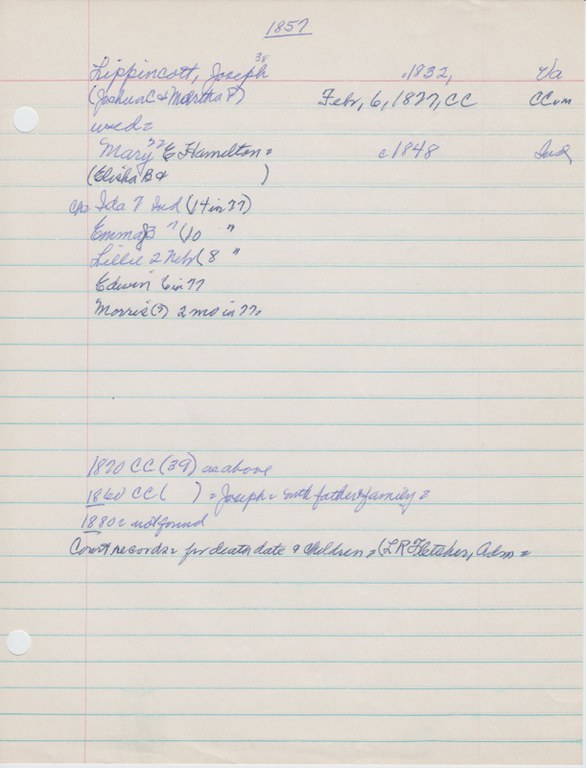 1857
Lippincott, Joseph 38 c1832, Va
(Joshua C & Martha P) Febr, 6, 1877, CC CCem
wed=
Mary 22 E Hamilton= c1848 Ind
(Elisha B & )
chs Ida 7 Ind (14 in 77)
Emma B " (10 "
Lillie 2 Nebr (8 "
Edwin 6 in 77
Morris (?) 2 mo in 77.
1870 CC (39) as above
1860 CC ( ) = Joseph = with father & family =
1880= not found
Court records = for death date & children = (L R Fletcher, Adm =